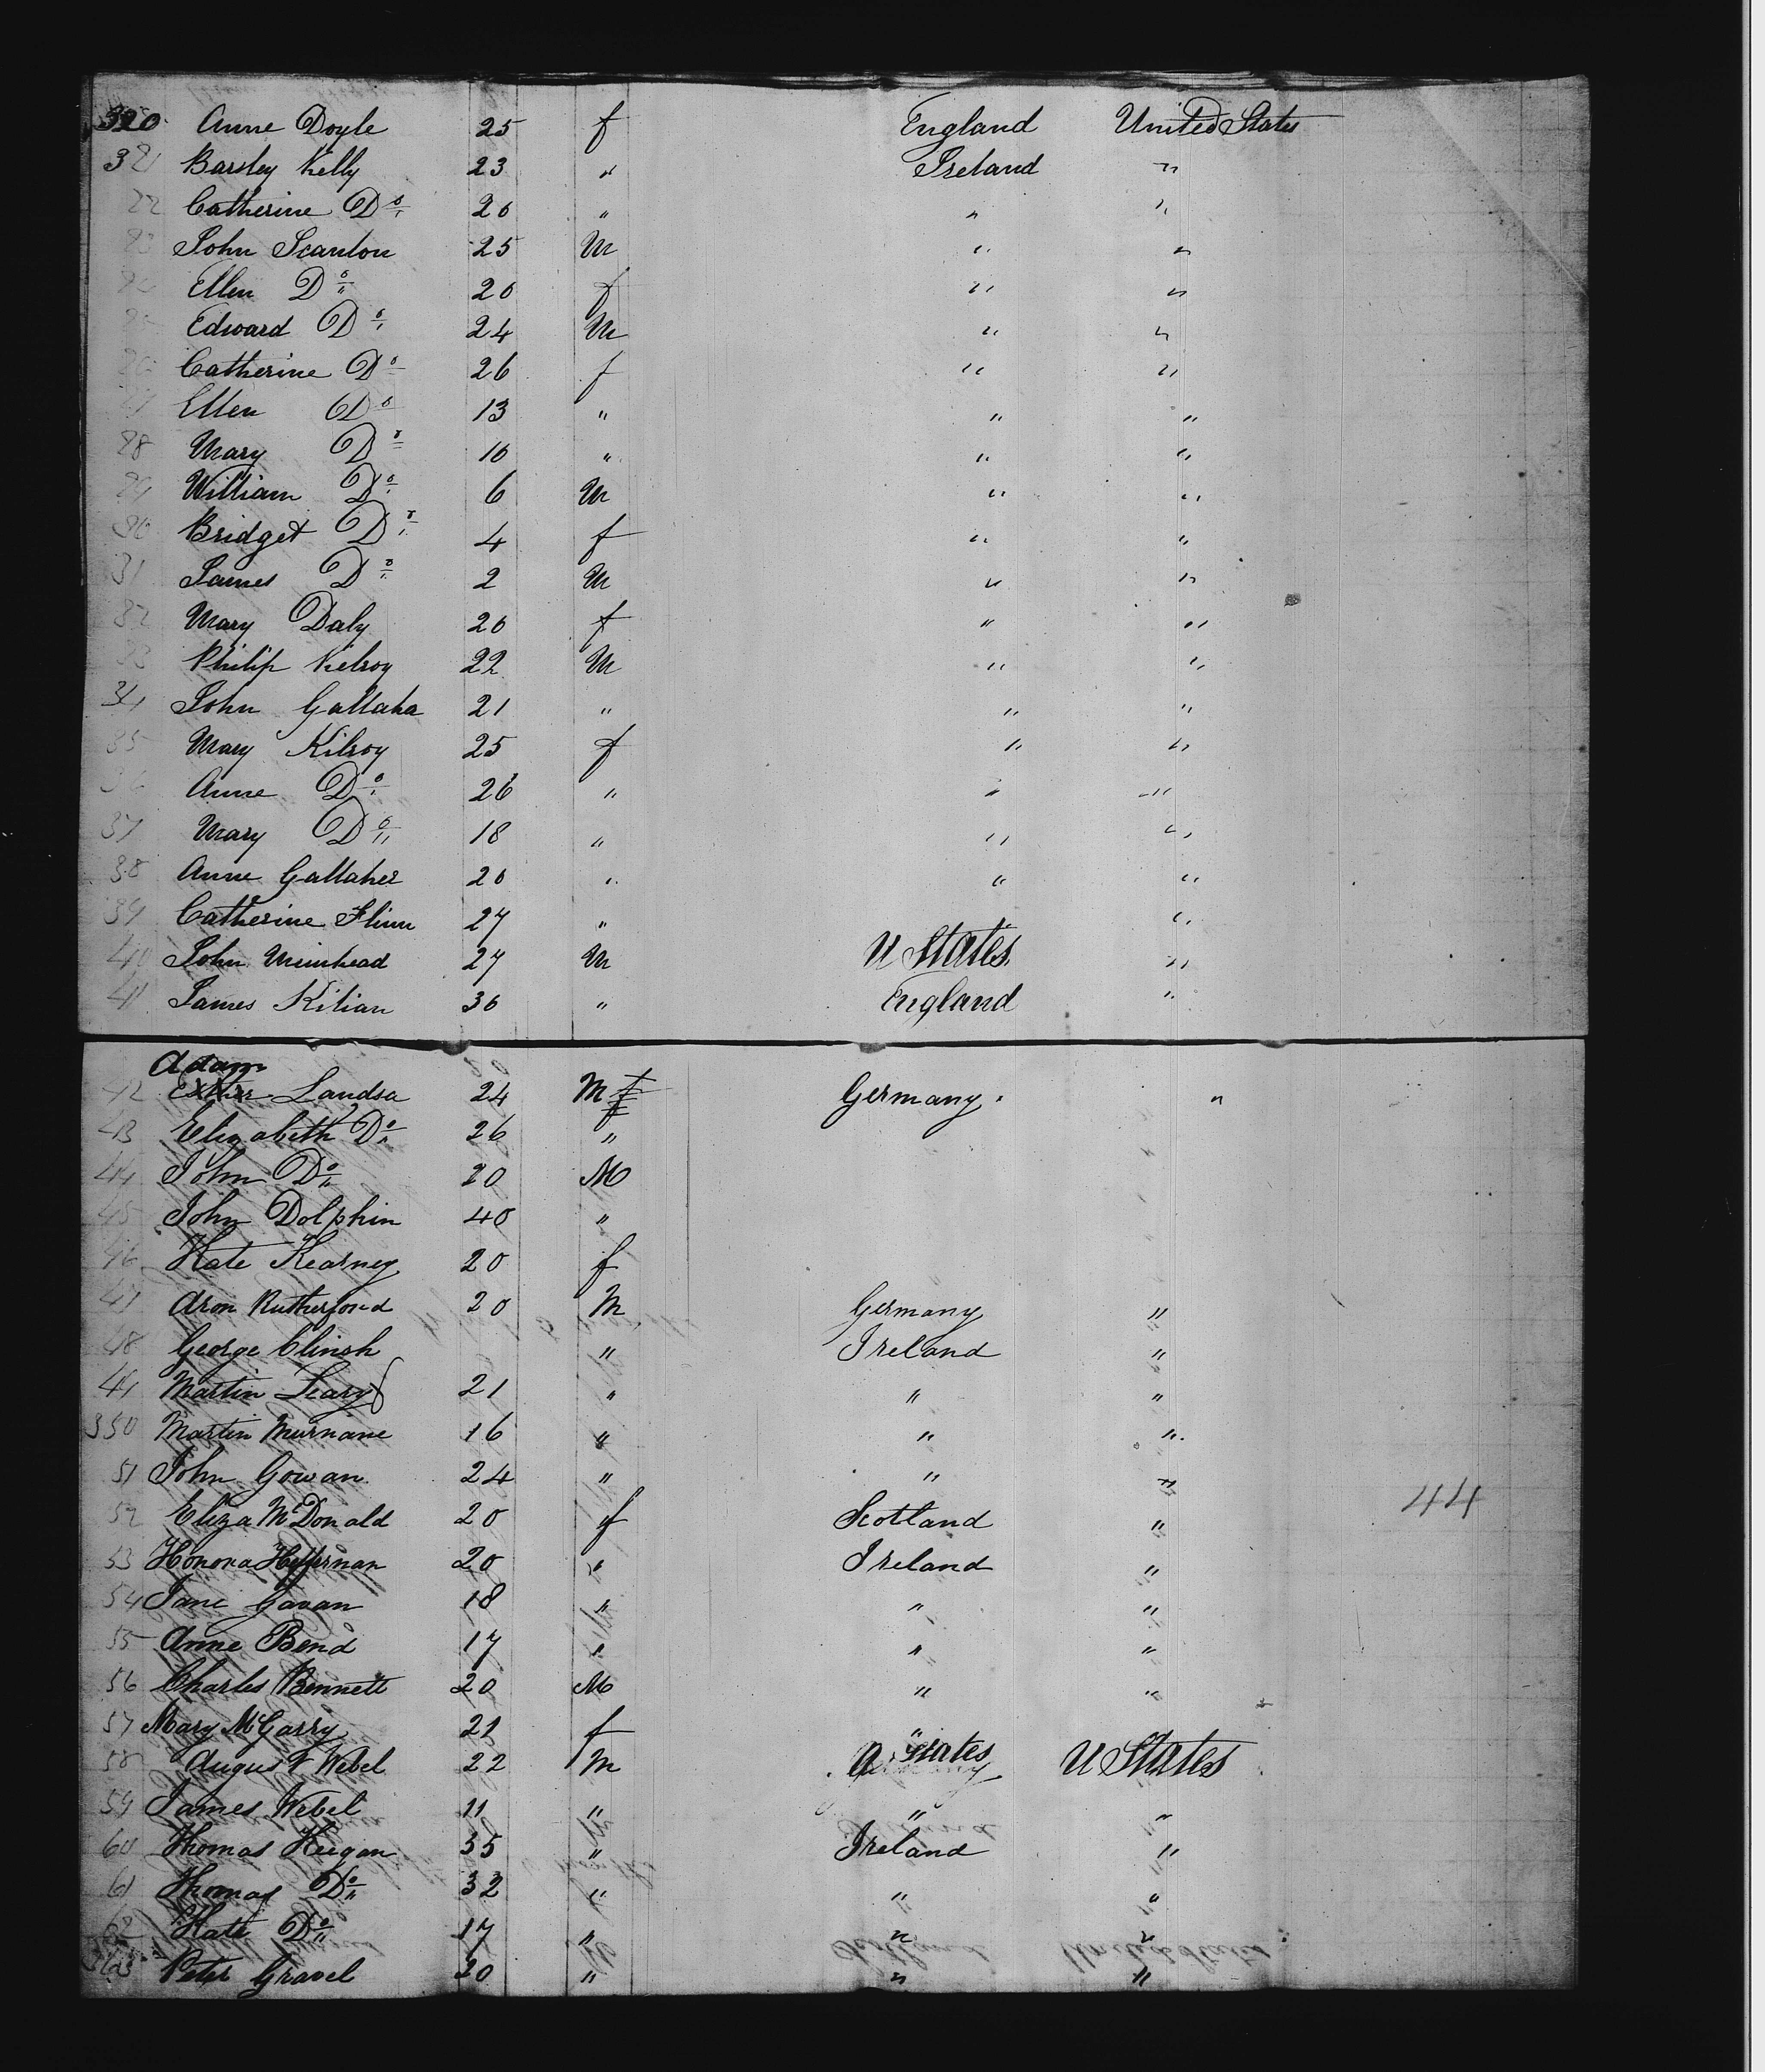 320 Anne Doyle 25 f England United States
321 Barsley Kelly 23 " Ireland "
22 Catherine Do 20 " " "
23 John Scanlon 25 M " "
24 Ellen Do 20 f " "
25 Edward Do 24 M " "
26 Catherine Do 26 f " "
27 Ellen Do 13 " " "
28 Mary Do 10 " " "
29 William Do 6 M " "
30 Bridget Do 4 f " "
31 James Do 2 M " "
32 Mary Daly 20 f " "
33 Philip Kelroy 22 M " "
34 John Gallaha 21 " " "
35 Mary Kilroy 25 f " "
36 Anne Do 26 " " "
37 Mary Do 18 " " "
38 Anne Gallaher 20 " " "
39 Catherine Flinn 27 " "
40 John Muirhead 27 M U States "
41 James Kilian 30 " England "
Adam
42 Esther Landsa 24 M f Germany "
43 Elizabeth Do 26 "
44 John Do 20 M
45 John Dolphin 40 "
46 Kate Kearney 20 f
47 Aron Rutherford 20 M Germany "
48 George Clinch " Ireland "
49 Martin Leary 21 " " "
350 Martin Murnane 16 " " "
51 John Gowan 24 " " "
44
52 Eliza McDonald 20 f Scotland "
53 Honora Heffernan 20 " Ireland "
54 Jane Gavan 18 " " "
55 Anne Bend 17 " " "
56 Charles Bennett 20 M " "
57 Mary McGarry 21 f "
58 August Webel 22 M U States U States
59 James Webel 11 " " "
60 Thomas Keegan 35 " Ireland "
61 Thomas Do 32 " " "
62 Kate Do 17 " " "
363 Peter Gravel 20 " " "